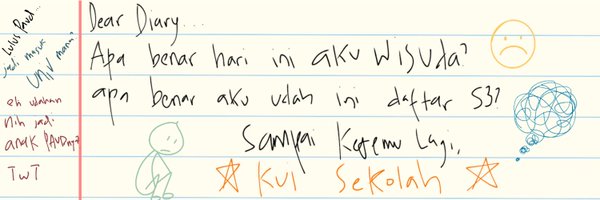 Lulus Paud..
jadi masuk
univ mana?
eh udahan
nih jadi
anak PAUDnya?
TwT
Dear Diary...
Apa benar hari ini aku wisuda?
apa benar aku udah ini daftar S3?
Sampai Ketemu Lagi,
Kui Sekolah